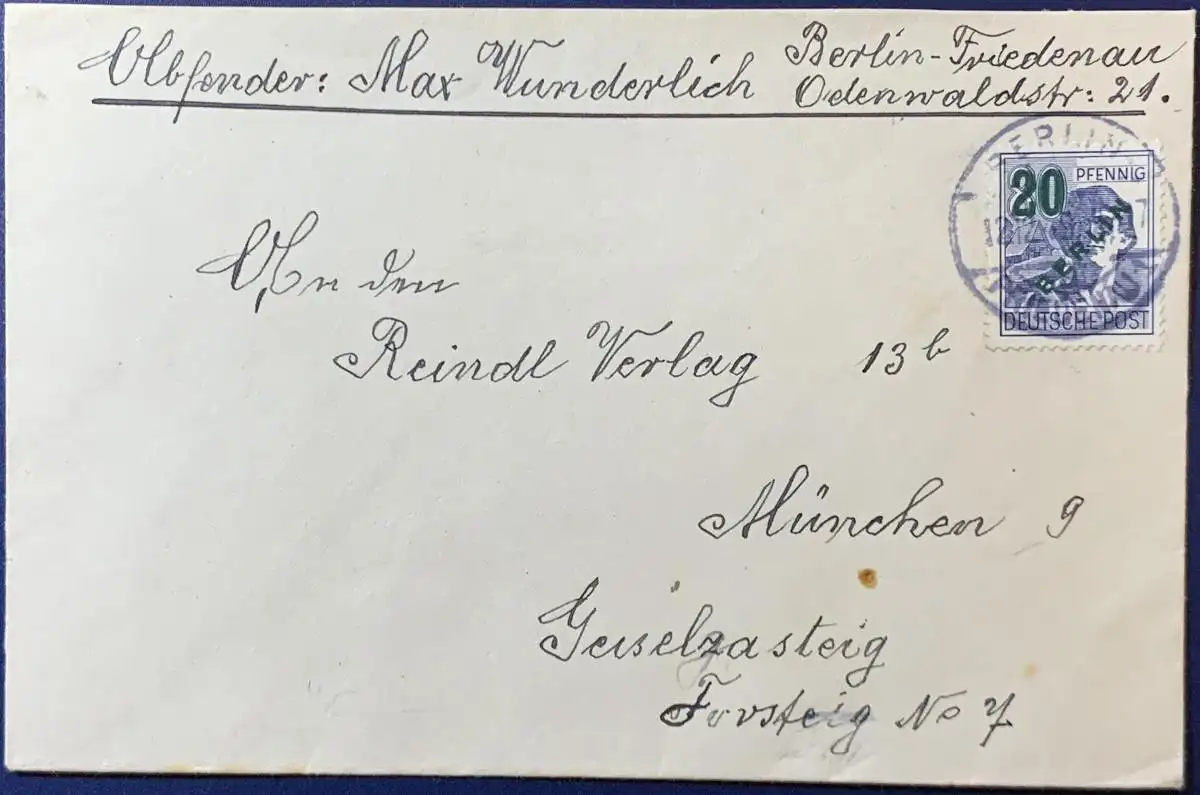 Absender: Max Wunderlich Berlin-Friedenau
Odenwaldstr: 21.
BERLIN
20 PFENNIG
BERLIN
DEUTSCHE POST
An den
Reindl Verlag 13b
München 9
Geiselgasteig
Forsteig No 7